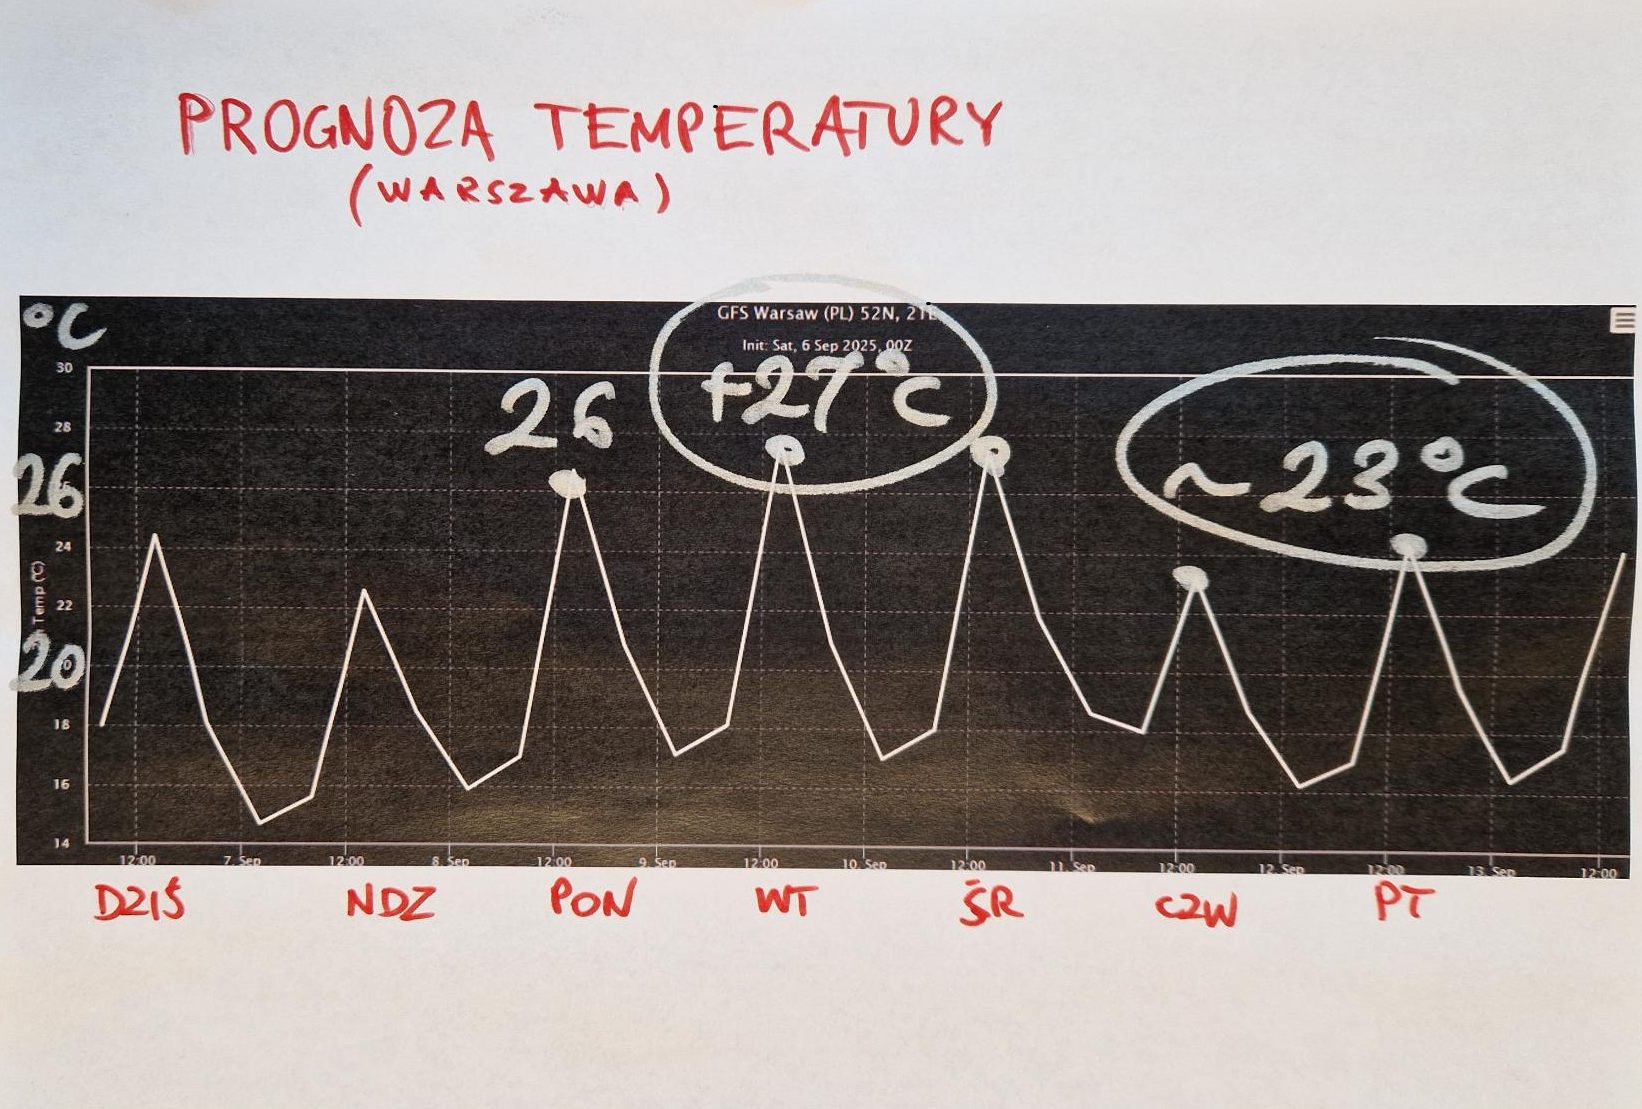 PROGNOZA TEMPERATURY
(WARSZAWA)
°C
GFS Warsaw (PL) 52N, 21E
Init: Sat, 6 Sep 2025, 00Z
30
28
26
24
22
20
18
16
14
Temp (C)
26
+27°C
~23°C
12:00 7. Sep 12:00 8. Sep 12:00 9. Sep 12:00 10. Sep 12:00 11. Sep 12:00 12. Sep 12:00 13. Sep 12:00
DZIŚ NDZ PON WT ŚR CZW PT